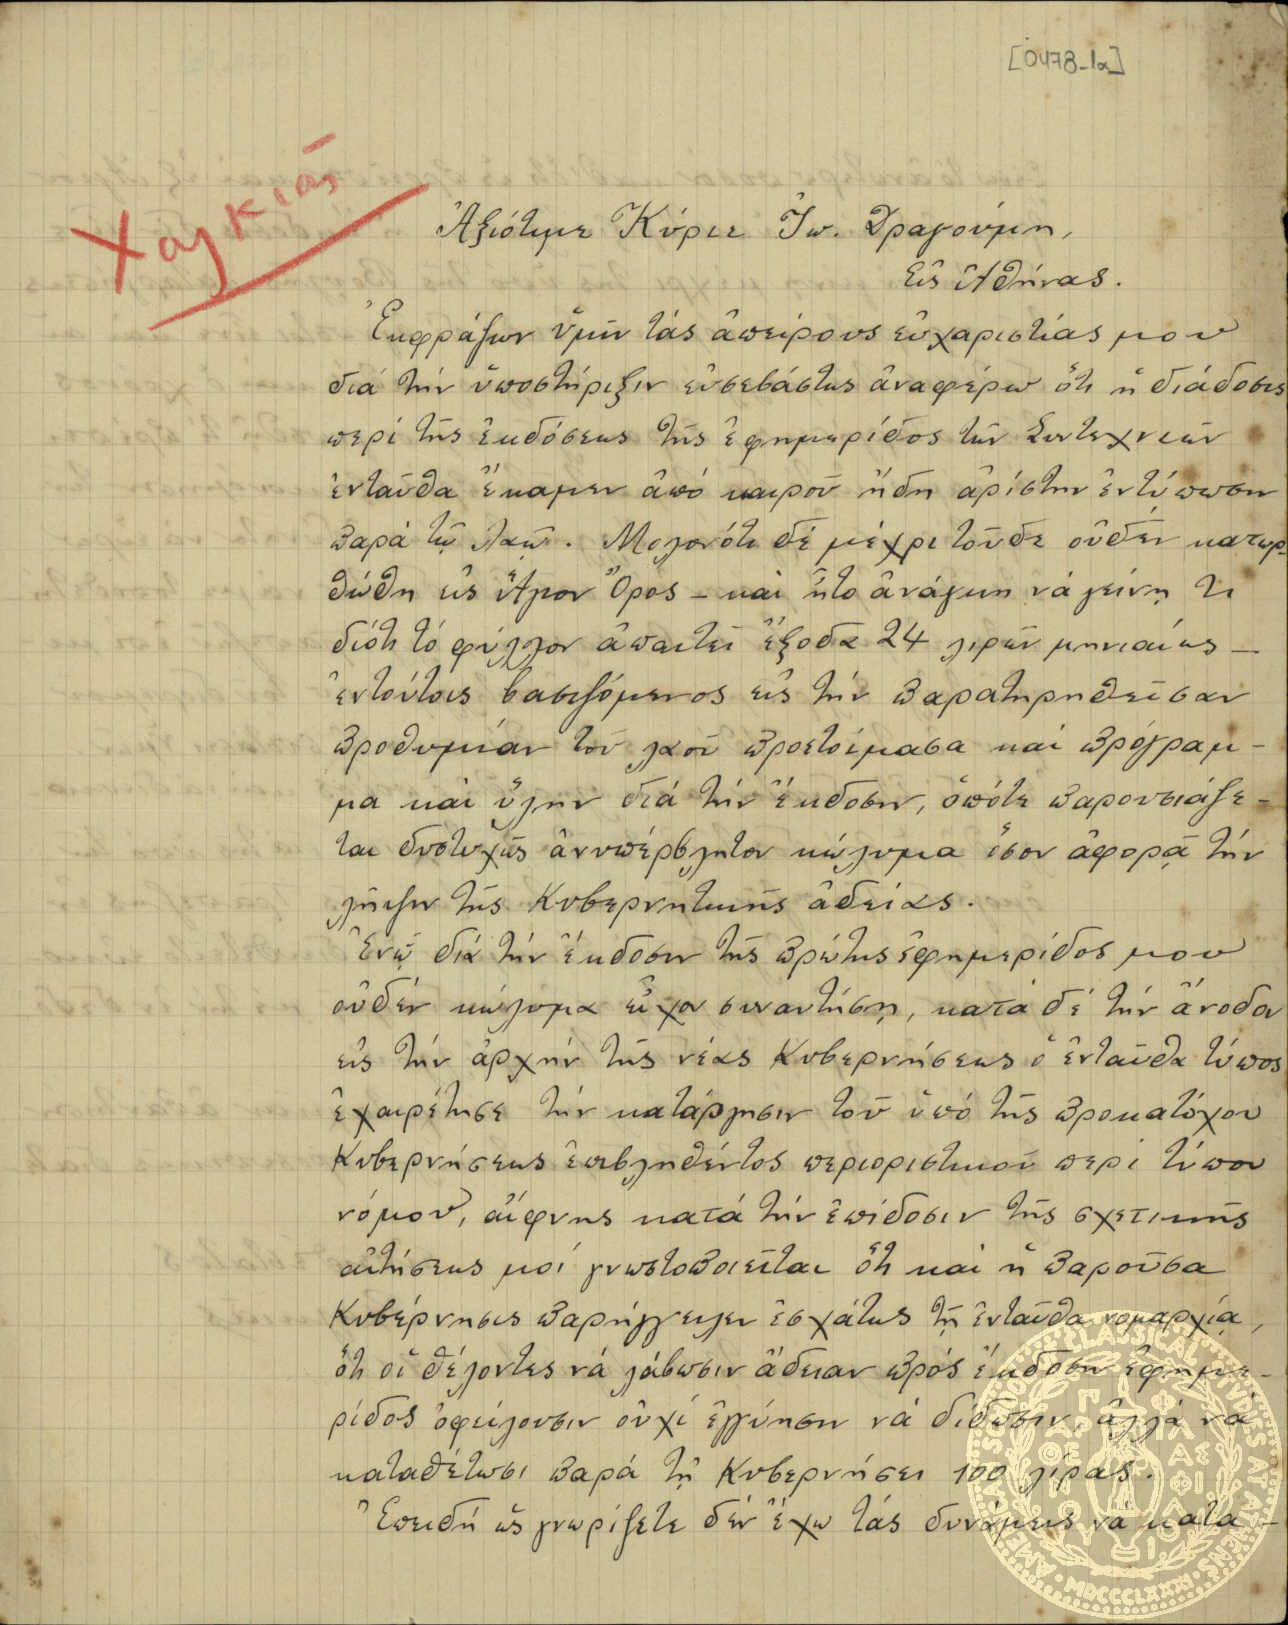 [0478-1α]
Χαγκιάς
Ἀξιότιμε Κύριε Ἰω. Δραγούμη,
Εἰς Ἀθήνας.
Ἐκφράζων ὑμῖν τάς ἀπείρους εὐχαριστίας μου
διά τήν ὑποστήριξιν εὐσεβάστως ἀναφέρω ὅτι ἡ διάδοσις
περί τῆς ἐκδόσεως τῆς ἐφημερίδος τῶν Συντεχνιῶν
ἐνταῦθα ἔκαμεν ἀπό καιροῦ ἤδη ἀρίστην ἐντύπωσιν
παρά τῷ λαῷ. Μολονότι δέ μέχρι τοῦδε οὐδέν κατωρ-
θώθη εἰς Ἅγιον Ὄρος - καὶ ἦτο ἀνάγκη νά γείνῃ τι
διότι τό φύλλον ἀπαιτεῖ ἔξοδα 24 λιρῶν μηνιαίως -
ἐντούτοις βασιζόμενος εἰς τήν παρατηρηθεῖσαν
προθυμίαν τοῦ λαοῦ προετοίμασα καί πρόγραμ-
μα καὶ ὕλην διά τήν ἔκδοσιν, ὁπότε παρουσιάζε-
ται δυστυχῶς ἀνυπέρβλητον κώλυμα ὅσον ἀφορᾷ τήν
λῆψιν τῆς Κυβερνητικῆς ἀδείας.
Ἐνῷ διά τήν ἔκδοσιν τῆς πρώτης ἐφημερίδος μου
οὐδέν κώλυμα εἶχον συναντήσῃ, κατά δέ τήν ἄνοδον
εἰς τήν ἀρχήν τῆς νέας Κυβερνήσεως ὁ ἐνταῦθα τύπος
ἐχαιρέτησε τήν κατάργησιν τοῦ ὑπό τῆς προκατόχου
Κυβερνήσεως ἐπιβληθέντος περιοριστικοῦ περί τύπου
νόμου, αἴφνης κατά τήν ἐπίδοσιν τῆς σχετικῆς
αἰτήσεως μοί γνωστοποιεῖται ὅτι καὶ ἡ παροῦσα
Κυβέρνησις παρήγγειλεν ἐσχάτως τῇ ἐνταῦθα νομαρχίᾳ,
ὅτι οἱ θέλοντες νά λάβωσιν ἄδειαν πρός ἔκδοσιν ἐφημε-
ρίδος ὀφείλουσιν οὐχί ἐγγύησιν νά δίδωσιν, ἀλλά νά
καταθέτωσι παρά τῇ Κυβερνήσει 100 λίρας.
Ἐπειδή ὡς γνωρίζετε δέν ἔχω τάς δυνάμεις νά κατα-